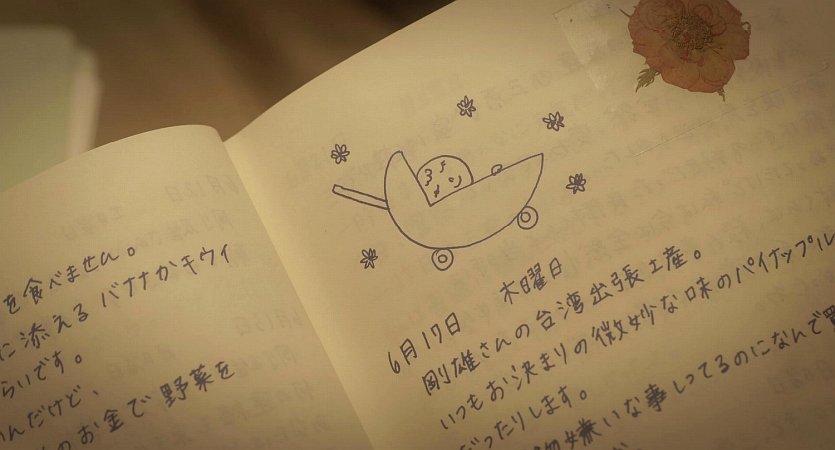 を食べません。
に添えるバナナかキウイ
らいです。
んだけど、
のお金で野菜を
6月17日 木曜日
剛雄さんの台湾出張土産。
いつもお決まりの微妙な味のパイナップル
だったりします。
嫌いな事しってるのになんで買